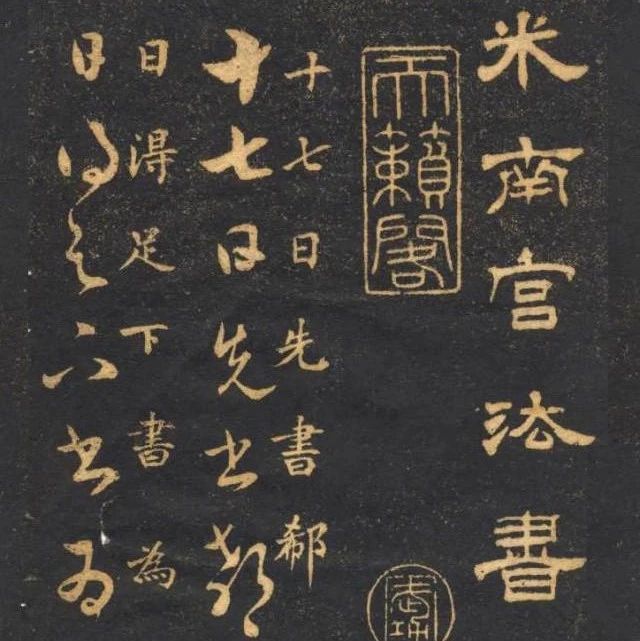 米南宫法書
天籟閣
十七日先書郗
十七日先書郗
日得足下書為
日得足下書為